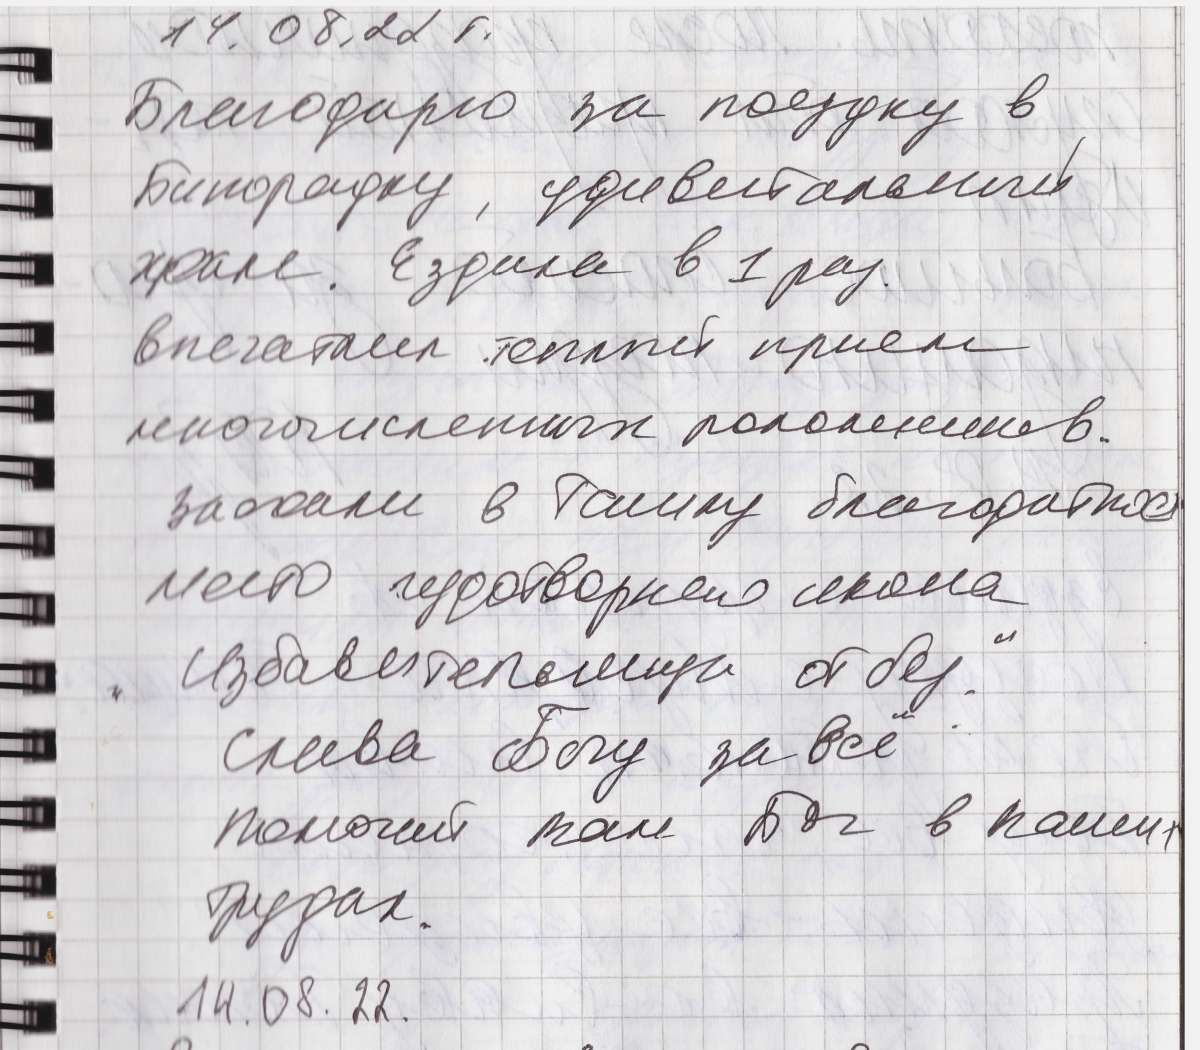 14.08.22 г.
Благодарю за поездку в
Винорадну, удивительный
храм. Ездила в 1 раз.
впечатлил теплый прием
многочисленных паломников.
заехали в Ташлу благодатное
место чудотворная икона
"Избавительница от бед."
Слава Богу за всё
Помогай вам Бог в ваших
трудах.
14.08.22.